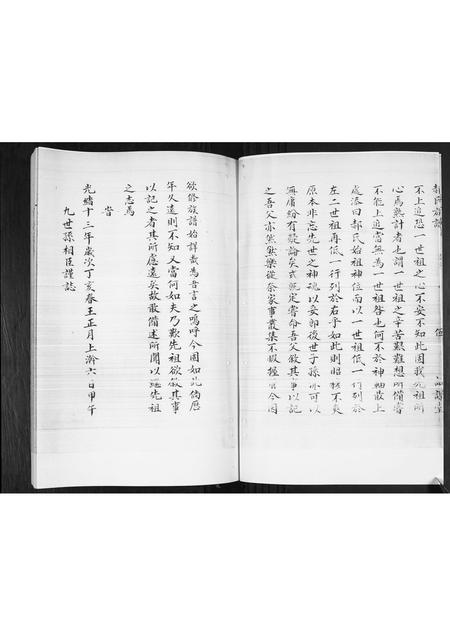 郝氏族譜
不上追恐一世祖之心不安不此固我先祖所
心為熟計者也謂一世祖之辛苦艱難想所備嘗
不能上追當無為一世祖咎也何不於神軸最上
處添曰郝氏始祖神位而以一世祖低一行列於
左二世祖再低一行列於右乎如此則昭穆不爽
原本非忘先世之神魂以妥即後世子孫亦可以
無庸紛有疑論矣式既定嘗命吾父敘其事以記
之吾父亦然然樂從奈家事叢集不暇握管今因
欲修族譜始詳載為吾言之嗚呼今固如此倘歷
年久遠則不知又當何如夫乃歎先祖欲敘其事
以記之者其所慮遠矣故敢備述所聞以繼先祖
之志焉
旹
光緒十三年歲次丁亥春王正月上澣六日甲午
九世孫相臣謹誌